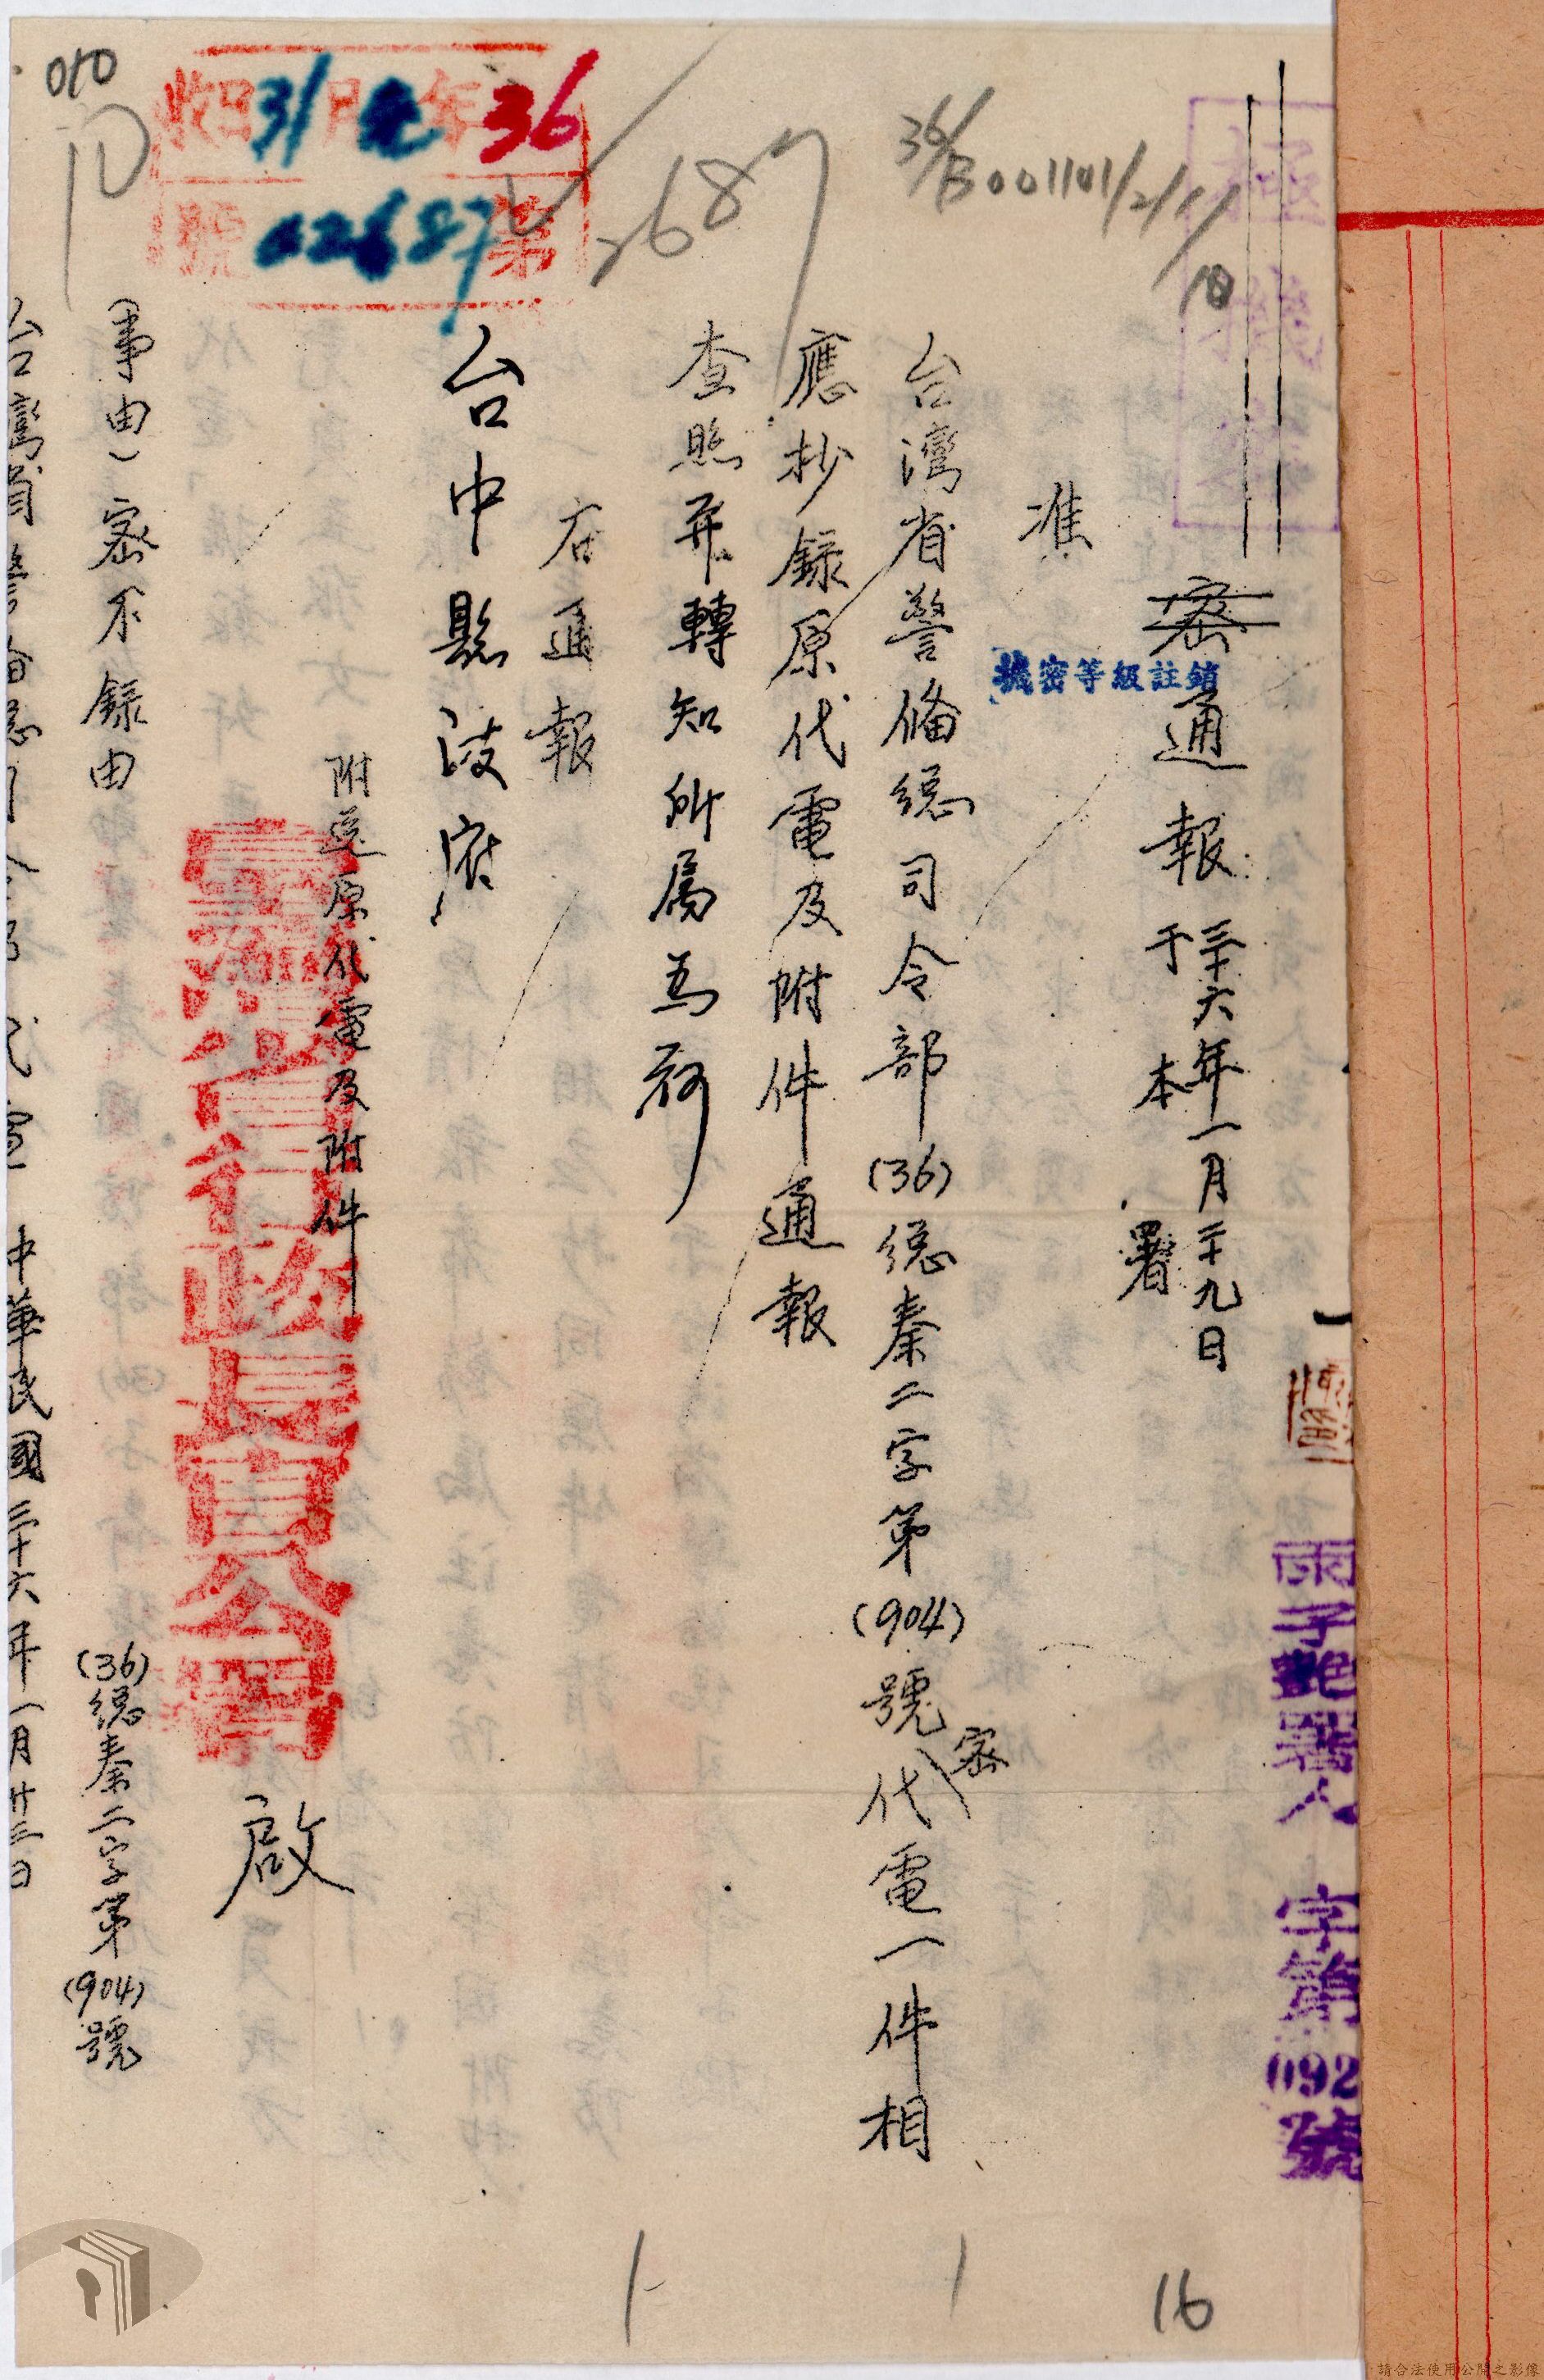 極機密
36/B001101/2/1/
10
密通報
三十六年一月二十九日
于本署
機密等級註銷
准
台灣省警備総司令部(36)総秦二字第(904)號密代電一件相
應抄録原代電及附件通報
查照并轉知所属為荷
右通報
台中縣政府
附送原代電及附件
臺灣省行政長官公署
啟
(事由)密不録由
(36)総秦二字第(904)號
中華民國三十六年一月廿三日
丙子艷署人 字第092號
36年元月31日收
第02687號
2687
010
10
16
請合法使用公開之影像